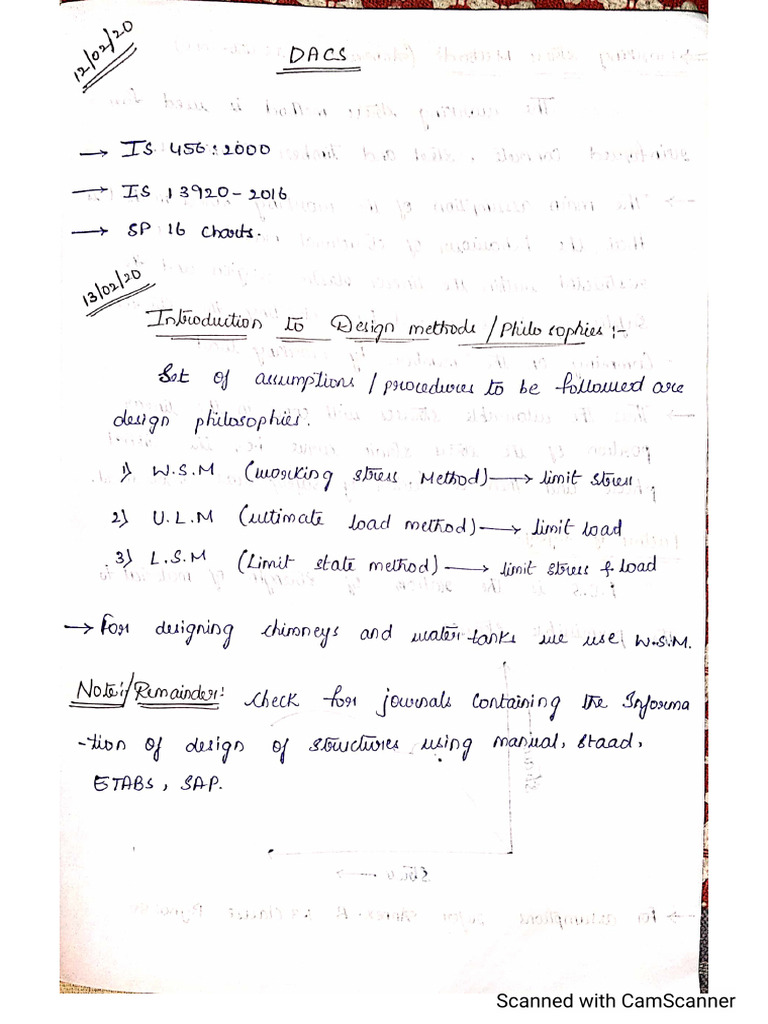 12/02/20
DACS
→ IS 456:2000
→ IS 13920-2016
→ SP 16 charts.
13/02/20
Introduction to Design methods/Philosophies :-
Set of assumptions / procedures to be followed are
design philosophies.
1) W.S.M (working stress Method) → limit stress
2) U.L.M (ultimate load method) → limit load
3) L.S.M (Limit state method) → limit stress & load
→ For designing chimneys and water tanks we use W.S.M.
Note:/Remainder: check for journals containing the Informa
-tion of design of structures using manual, staad,
ETABS, SAP.
Scanned with CamScanner